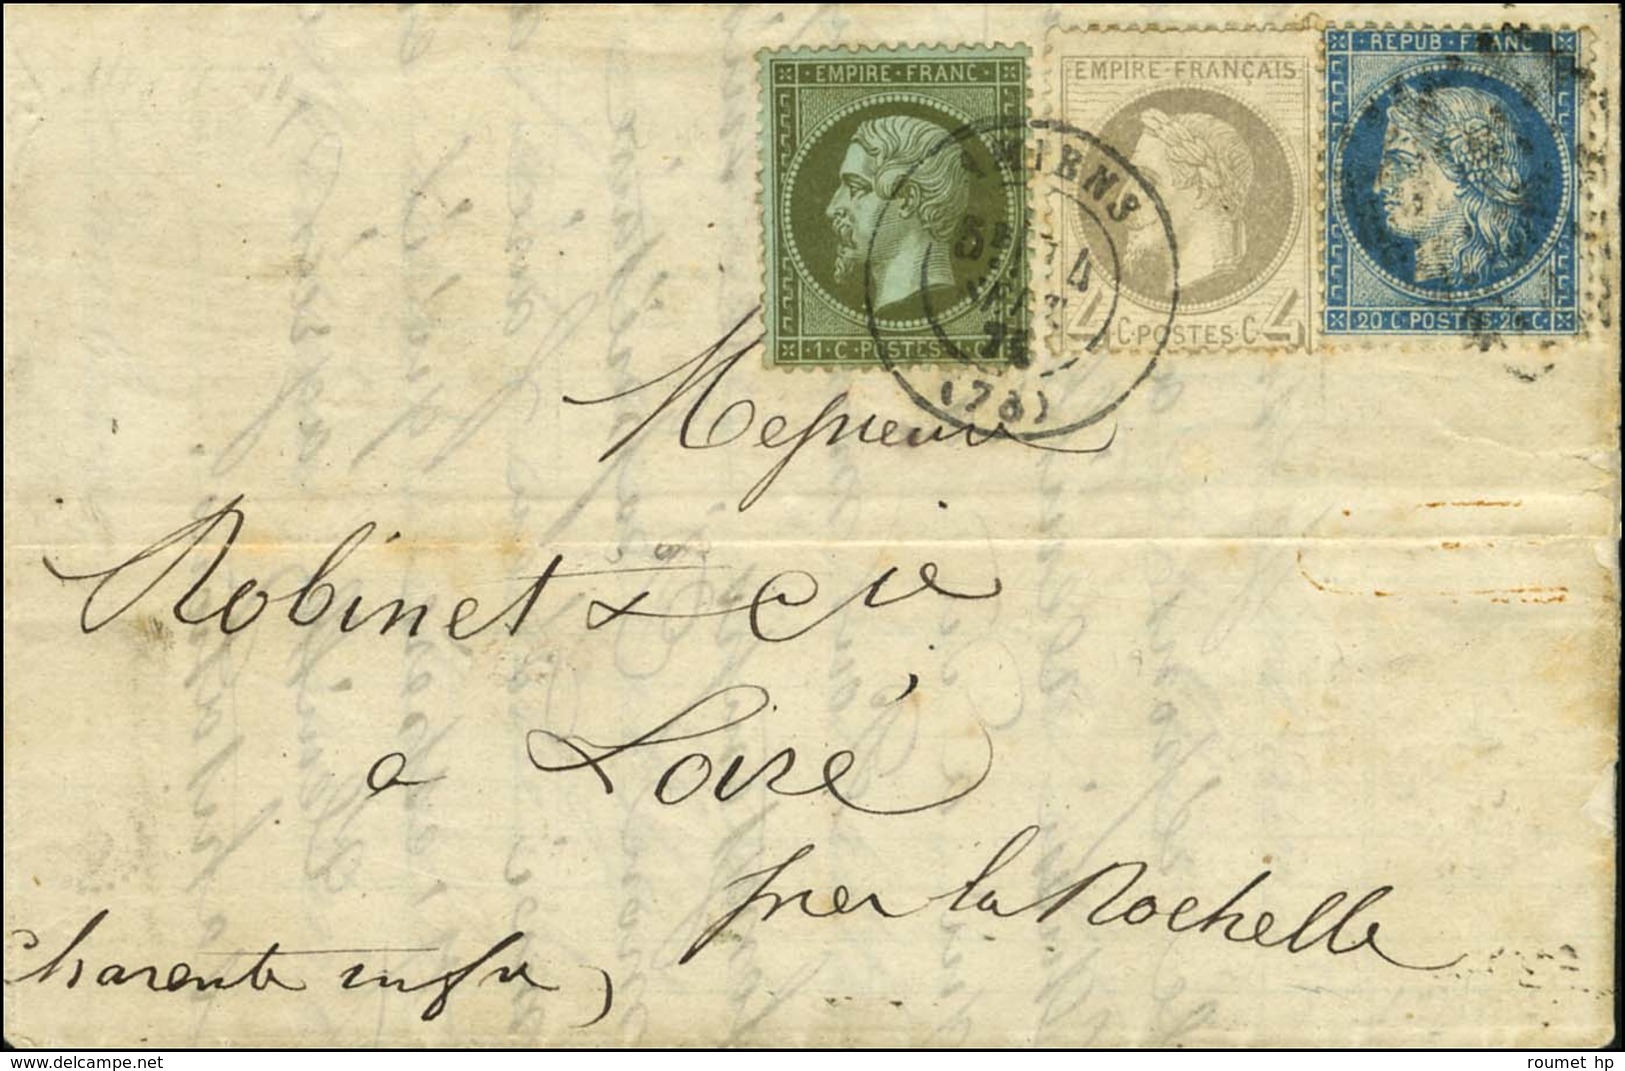 EMPIRE · FRANC ·
1 · C · POSTES · 1 · C
EMPIRE · FRANÇAIS
4 C · POSTES · C 4
REPUB · FRANC
20 · C · POSTES · 20 · C ·
AMIENS
5E
4
Messieurs
Robinet & Cie
a Loiré
près la Rochelle
Charente infre
www.delcampe.net
roumet hp